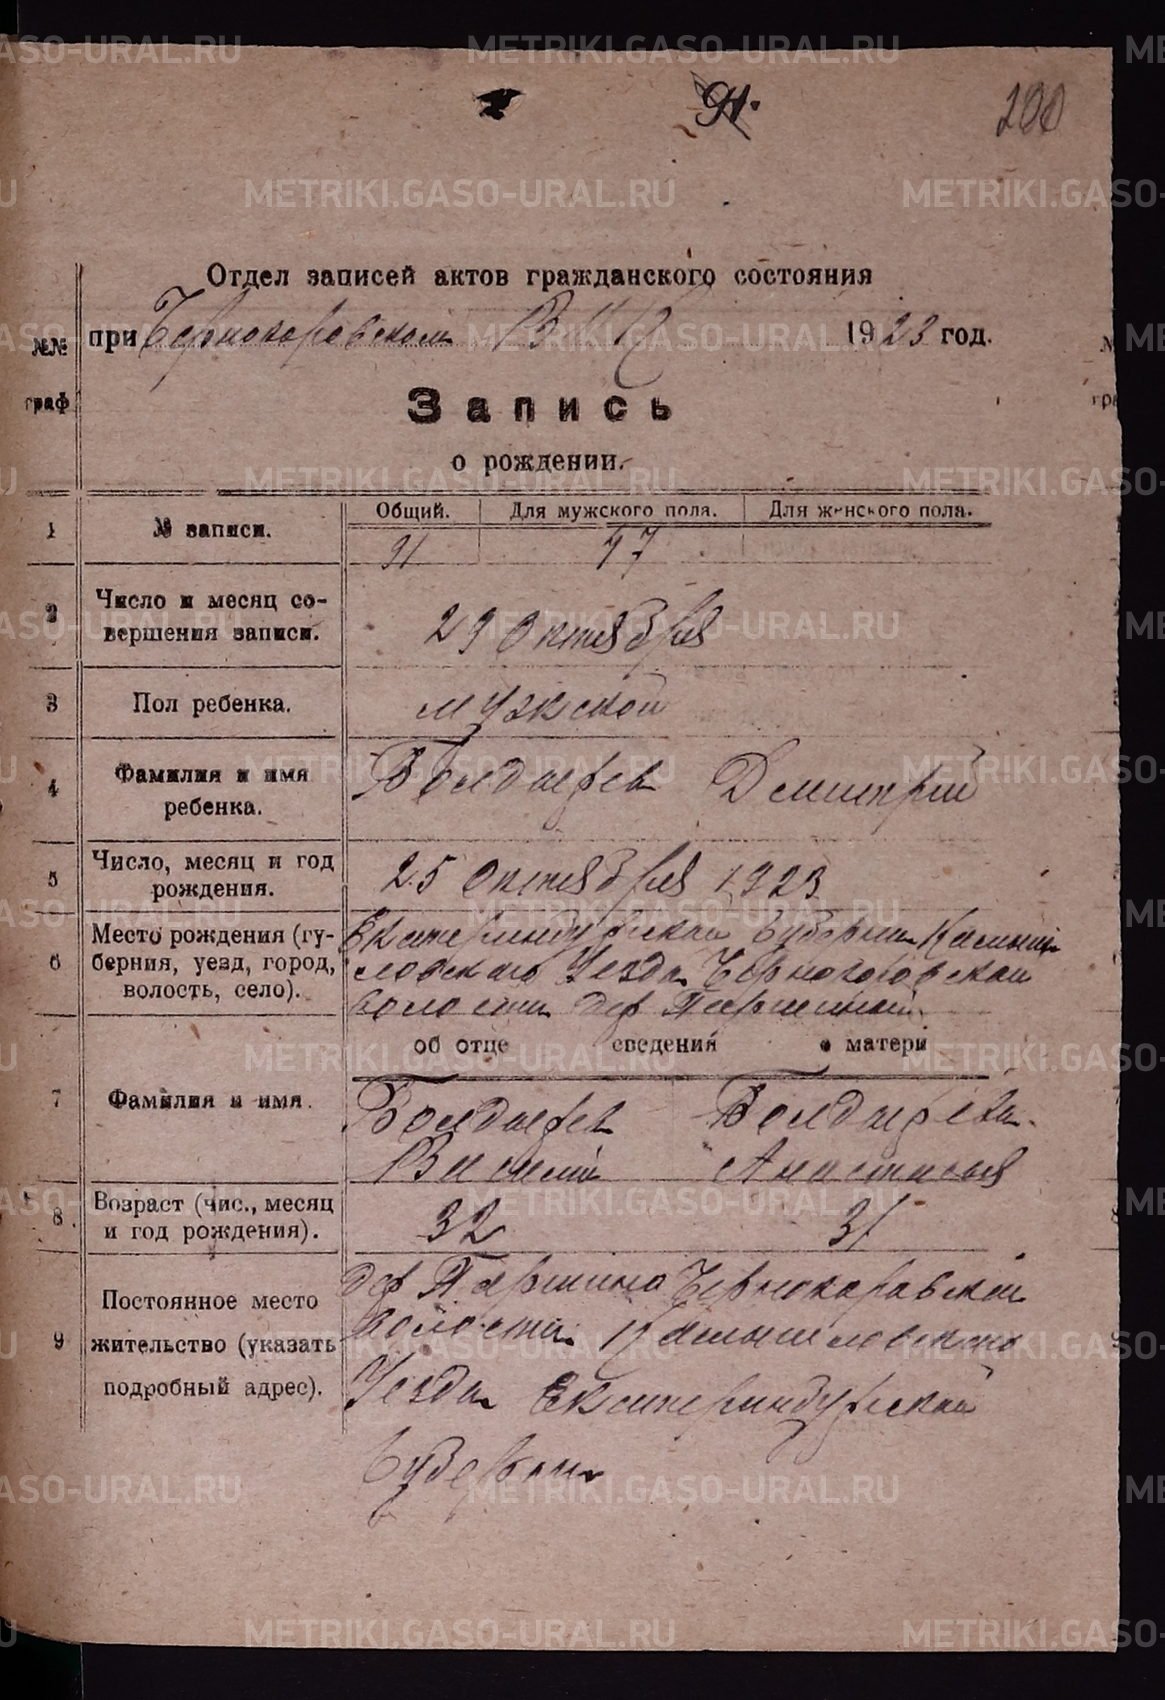 91.
200
Отдел записей актов гражданского состояния
при Чернокоровском ВИК 1923 год.
№№
граф
Запись
о рождении.
1 № записи. Общий. Для мужского пола. Для женского пола.
91 47
2 Число и месяц со-
вершения записи. 29 Октября
3 Пол ребенка. мужской
4 Фамилия и имя
ребенка. Болдырев Дмитрий
5 Число, месяц и год
рождения. 25 Октября 1923
6 Место рождения (гу-
берния, уезд, город,
волость, село). Екатеринбургской Губернии Камыш
ловского Уезда Чернокоровской
волости дер Паршиной
об отце сведения о матери
7 Фамилия и имя. Болдырев Болдырева
Василий Анастасья
8 Возраст (чис., месяц
и год рождения). 32 31
9 Постоянное место
жительство (указать
подробный адрес). дер Паршино Чернокоровской
волости Камышловского
Уезда Екатеринбургской
Губернии
METRIKI.GASO-URAL.RU